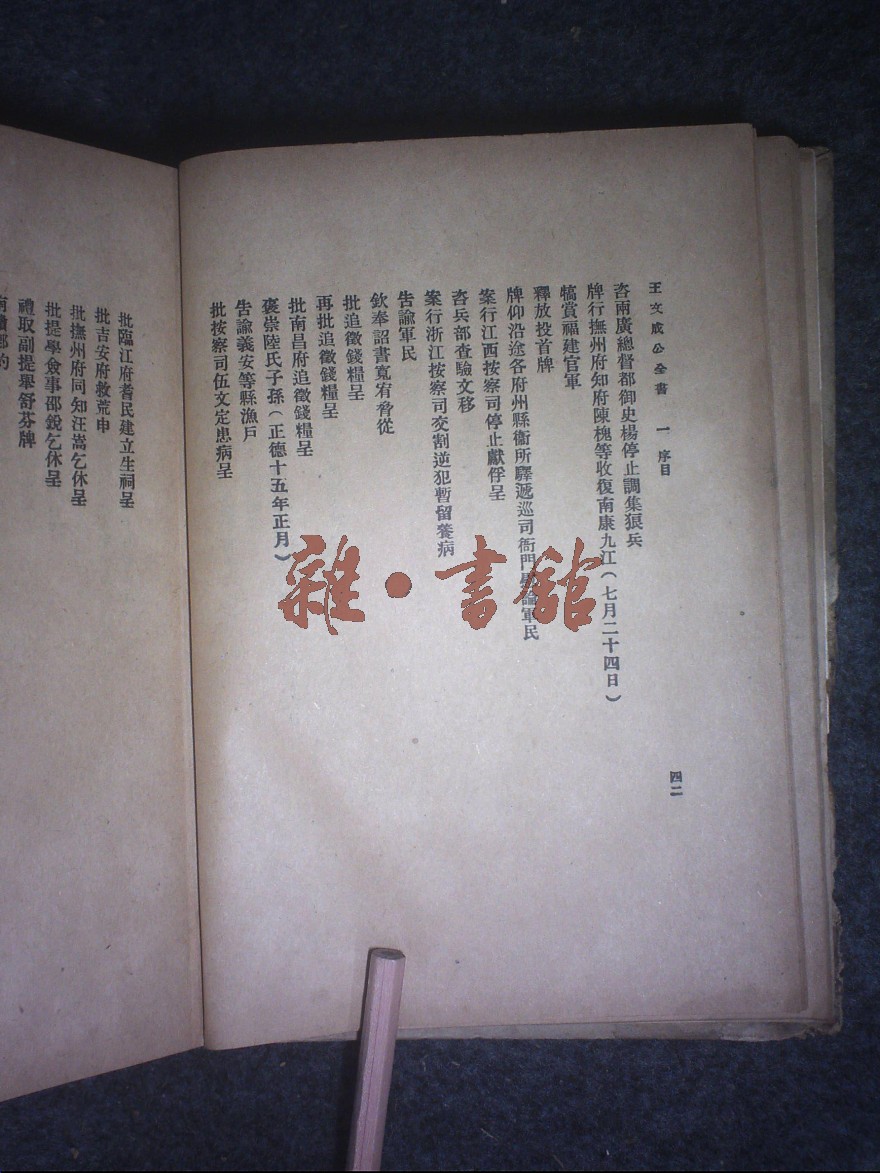 王文成公全書 一 序目
四二
咨兩廣總督都御史楊停止調集狼兵
牌行撫州府知府陳槐等收復南康九江(七月二十四日)
犒賞福建官軍
釋放投首牌
牌仰沿途各府州縣衞所驛遞巡司衙門慰諭軍民
案行江西按察司停止獻俘呈
咨兵部查驗文移
案行浙江按察司交割逆犯暫留養病
告諭軍民
欽奉詔書寬宥脅從
批追徵錢糧呈
再批追徵錢糧呈
批南昌府追徵錢糧呈
褒崇陸氏子孫(正德十五年正月)
告諭義安等縣漁戶
批按察司伍文定患病呈
批臨江府耆民建立生祠呈
批吉安府救荒申
批撫州府同知汪嵩乞休呈
批提學僉事邵銳乞休呈
禮取副提舉舒芬牌
雜·書館